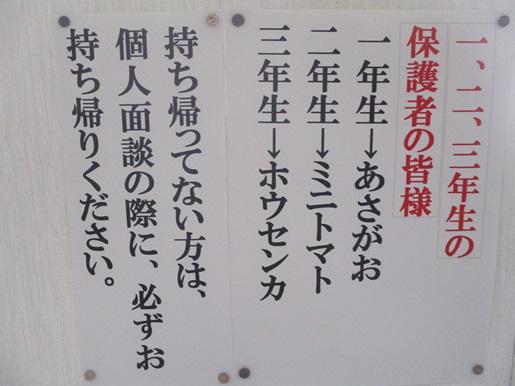 一、二、三年生の
保護者の皆様
一年生→あさがお
二年生→ミニトマト
三年生→ホウセンカ
持ち帰ってない方は、
個人面談の際に、必ずお
持ち帰りください。